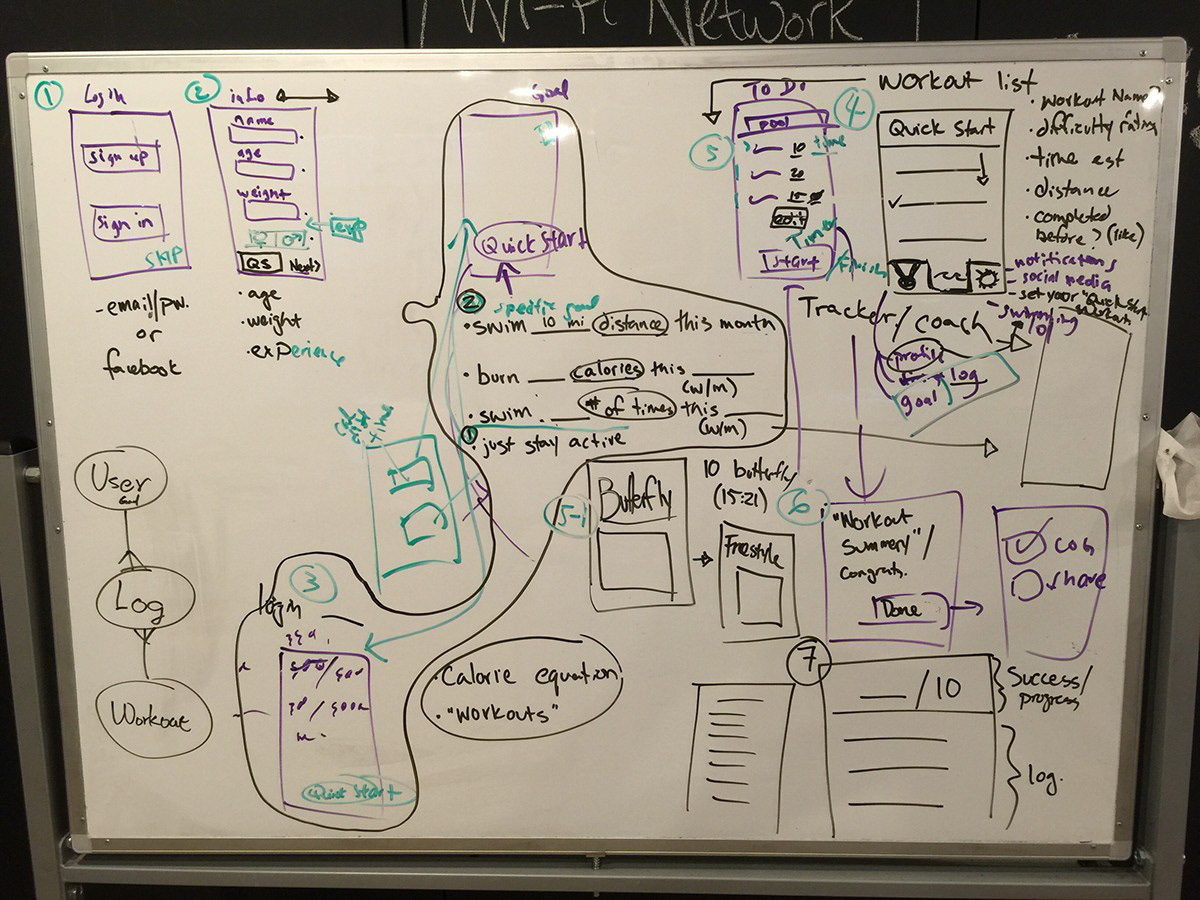 Wi-Fi Network
① Login
sign up
sign in
SKIP
- email/pw.
or
facebook
② info
name
age
weight
exp
QS Next>
• age
• weight
• experience
Goal
Quick Start
② specific goal
• swim 10 mi distance this month
• burn ___ calories this ___
(w/m)
• swim ___ # of times this ___
(w/m)
① just stay active
To Do
⑤
pool
10 time
20
15
edit
Timer
Start
Finish
④ Workout list
Quick Start
• Workout Name
• difficulty rating
• time est
• distance
• completed
before? (like)
- notifications
- social media
- set your "Quick Start
workout"
- swimming
Tracker/coach
profile
log
goal
User
Goal
Log
Workout
③
login
Quick Start
5-1
Buterfly
10 butterfly
(15:21)
Freestyle
⑥
"Workout
Summery"/
Congrats.
Done
share
• Calorie equation
• "workouts"
⑦
___/10
Success/
progress
log.